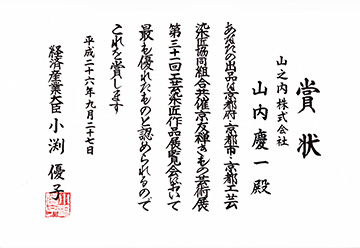 賞状
山之内株式会社
山内慶一殿
あなたの出品は京都府・京都市・京都工芸
染匠協同組合共催京友禅きもの芸術展
第三十二回工芸染匠作品展覧会において
最も優れたものと認められるので
これを賞します
平成二十六年九月二十七日
経済産業大臣 小渕優子